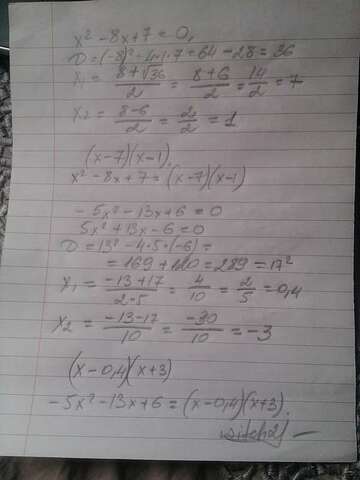 x² - 8x + 7 = 0,
D = (-8)² - 4·1·7 = 64 - 28 = 36
x₁ = (8 + √36)/2 = (8 + 6)/2 = 14/2 = 7
x₂ = (8 - 6)/2 = 2/2 = 1
(x-7)(x-1),
x² - 8x + 7 = (x-7)(x-1)
- 5x² - 13x + 6 = 0
5x² + 13x - 6 = 0
D = 13² - 4·5·(-6) =
= 169 + 120 = 289 = 17²
x₁ = (-13 + 17)/(2·5) = 4/10 = 2/5 = 0,4
x₂ = (-13 - 17)/10 = -30/10 = -3
(x - 0,4)(x + 3)
- 5x² - 13x + 6 = (x - 0,4)(x + 3).